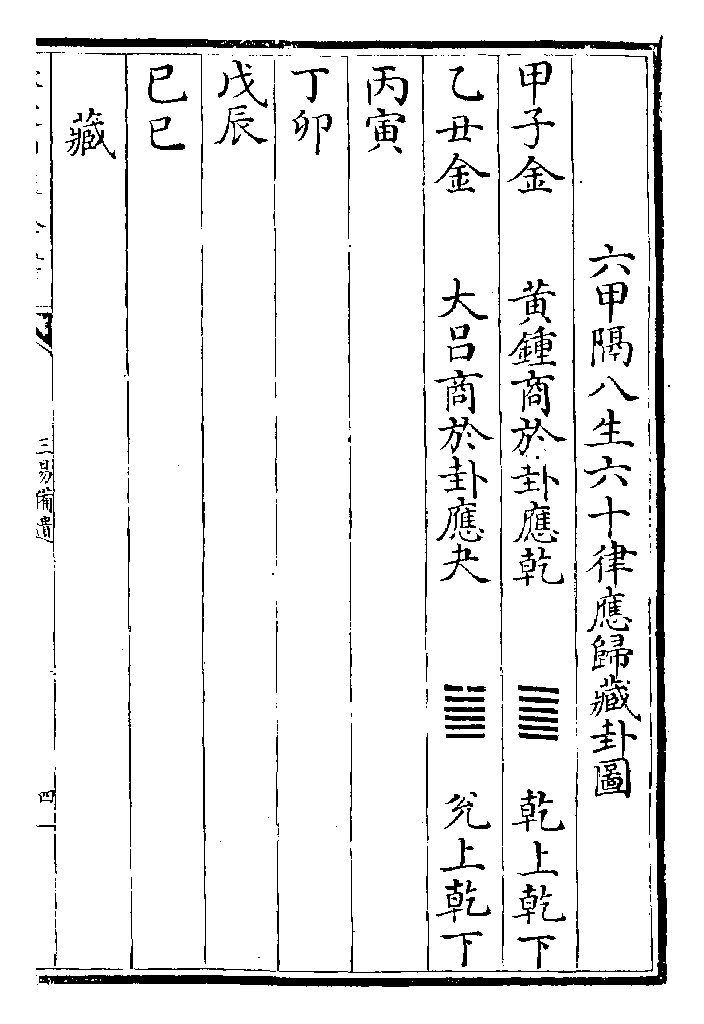 六甲隔八生六十律應歸藏卦圖
甲子金　黃鍾商於卦應乾　䷀　乾上乾下
乙丑金　大呂商於卦應夬　䷪　兊上乾下
丙寅
丁卯
戊辰
己巳
藏
三易備遺
四